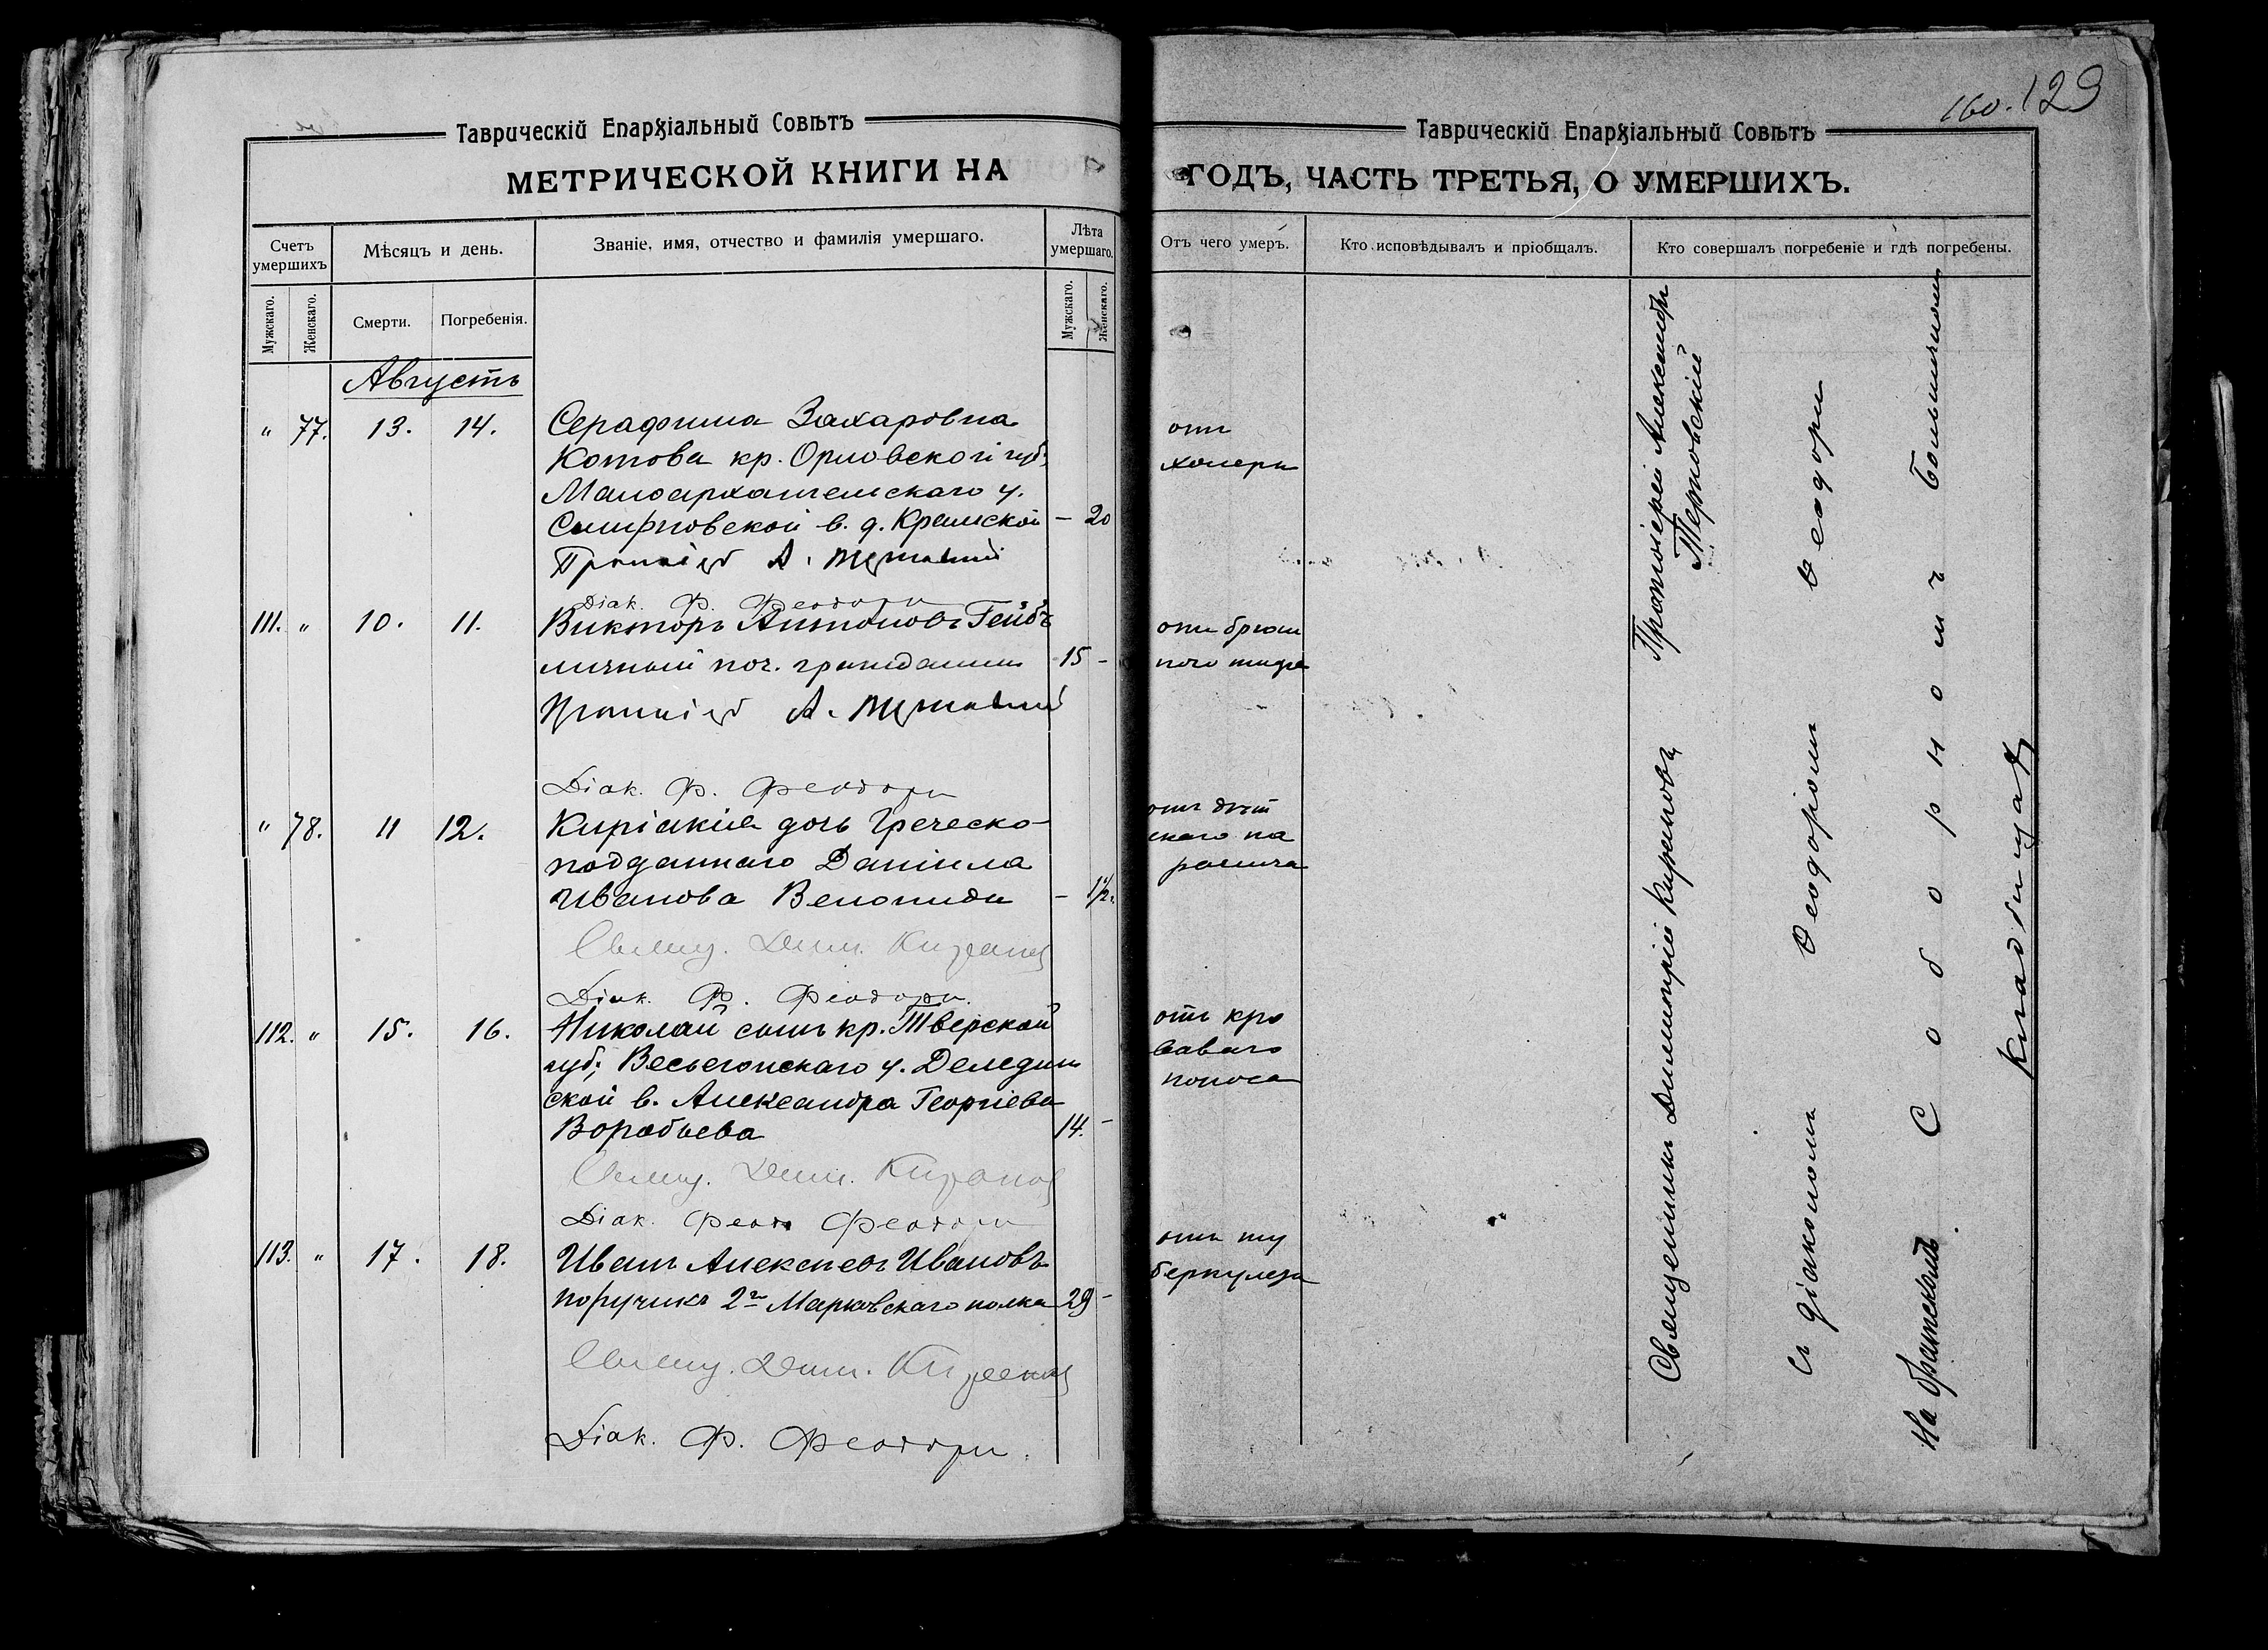 Таврическій Епархіальный Совѣтъ
МЕТРИЧЕСКОЙ КНИГИ НА
Счетъ умершихъ
Мѣсяцъ и день.
Званіе, имя, отчество и фамилія умершаго.
Лѣта умершаго.
Мужскаго.
Женскаго.
Смерти.
Погребенія.
Мужскаго.
Женскаго.
Августъ
" 77. 13. 14. Серафима Захаровна
Котова кр. Орловской губ.
Малоархангельскаго у.
Смирновской в. д. Крамской - 20
А. Терновскій
Діак. Ф. Феодори
111. " 10. 11. Викторъ Антоновъ Гейбъ
личный поч. гражданинъ 15 -
А. Терновскій
Діак. Ф. Феодори
" 78. 11 12. Киріакія дочь Греческо-
подданнаго Даніила
Иванова Велониди - 1½.
Свящ. Дим. Кирановъ
Діак. Ф. Феодори.
112. " 15. 16. Николай сынъ кр. Тверской
губ; Весьегонскаго у. Деледин
ской в. Александра Георгіева
Воробьева 14. -
Свящ. Дим. Кирановъ
Діак. Феод Феодори
113. " 17. 18. Иванъ Алексѣевъ Ивановъ
поручикъ 2го Марковскаго полка 29 -
Свящ. Дим. Кирановъ
Діак. Ф. Феодори.
160. 129
Таврическій Епархіальный Совѣтъ
ГОДЪ, ЧАСТЬ ТРЕТЬЯ, О УМЕРШИХЪ.
Отъ чего умеръ.
Кто исповѣдывалъ и пріобщалъ.
Кто совершалъ погребеніе и гдѣ погребены.
отъ
холеры
отъ брюш
ного тифа
отъ дѣт
скаго па
ралича
отъ кро
ваваго
поноса
отъ ту
беркулеза
Протоіерей Александръ
Терновскій
Священникъ Димитрій Кирановъ
съ діакономъ Ѳеодоромъ Ѳеодори
На братскомъ Соборномъ Больничномъ
кладбищахъ